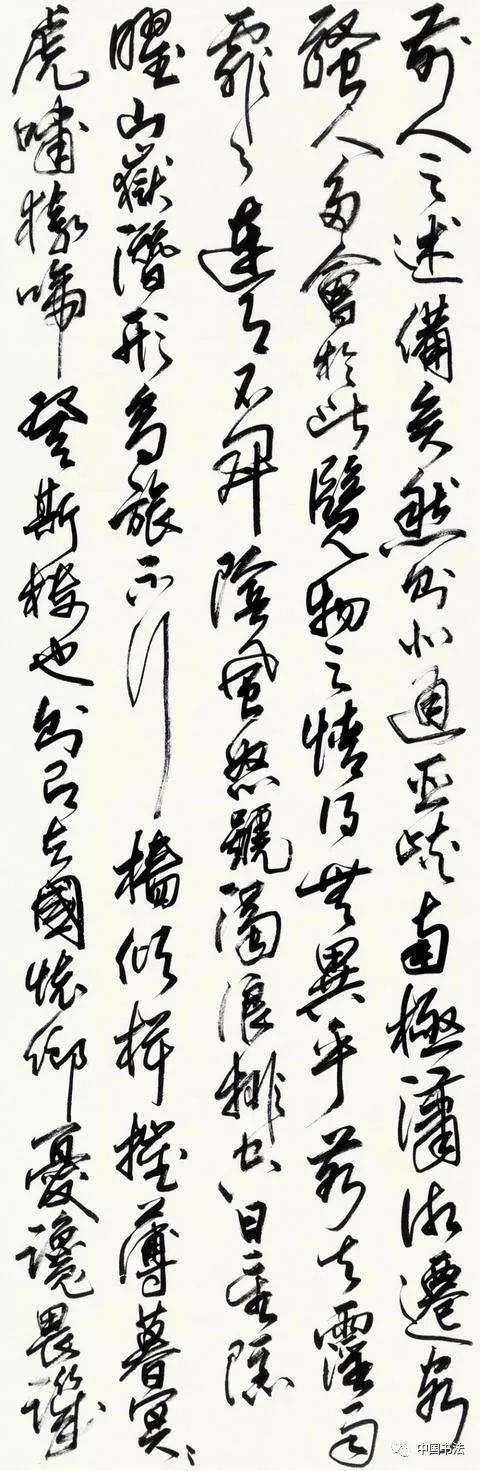 前人之述備矣然則北通巫峽南極瀟湘遷客
騷人多會於此覽物之情得無異乎若夫霪雨
霏々連月不開陰風怒號濁浪排空日星隱
曜山嶽潛形商旅不行檣傾楫摧薄暮冥々
虎嘯猿啼登斯樓也則有去國懷鄉憂讒畏譏
中国书法